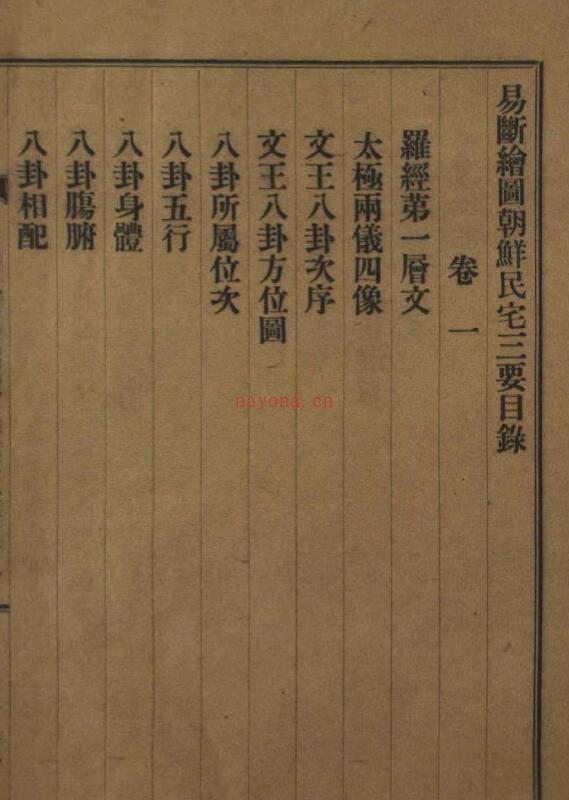 易斷繪圖朝鮮民宅三要目錄
卷一
羅經第一層文
太極兩儀四像
文王八卦次序
文王八卦方位圖
八卦所屬位次
八卦五行
八卦身體
八卦膓腑
八卦相配
nayona.cn